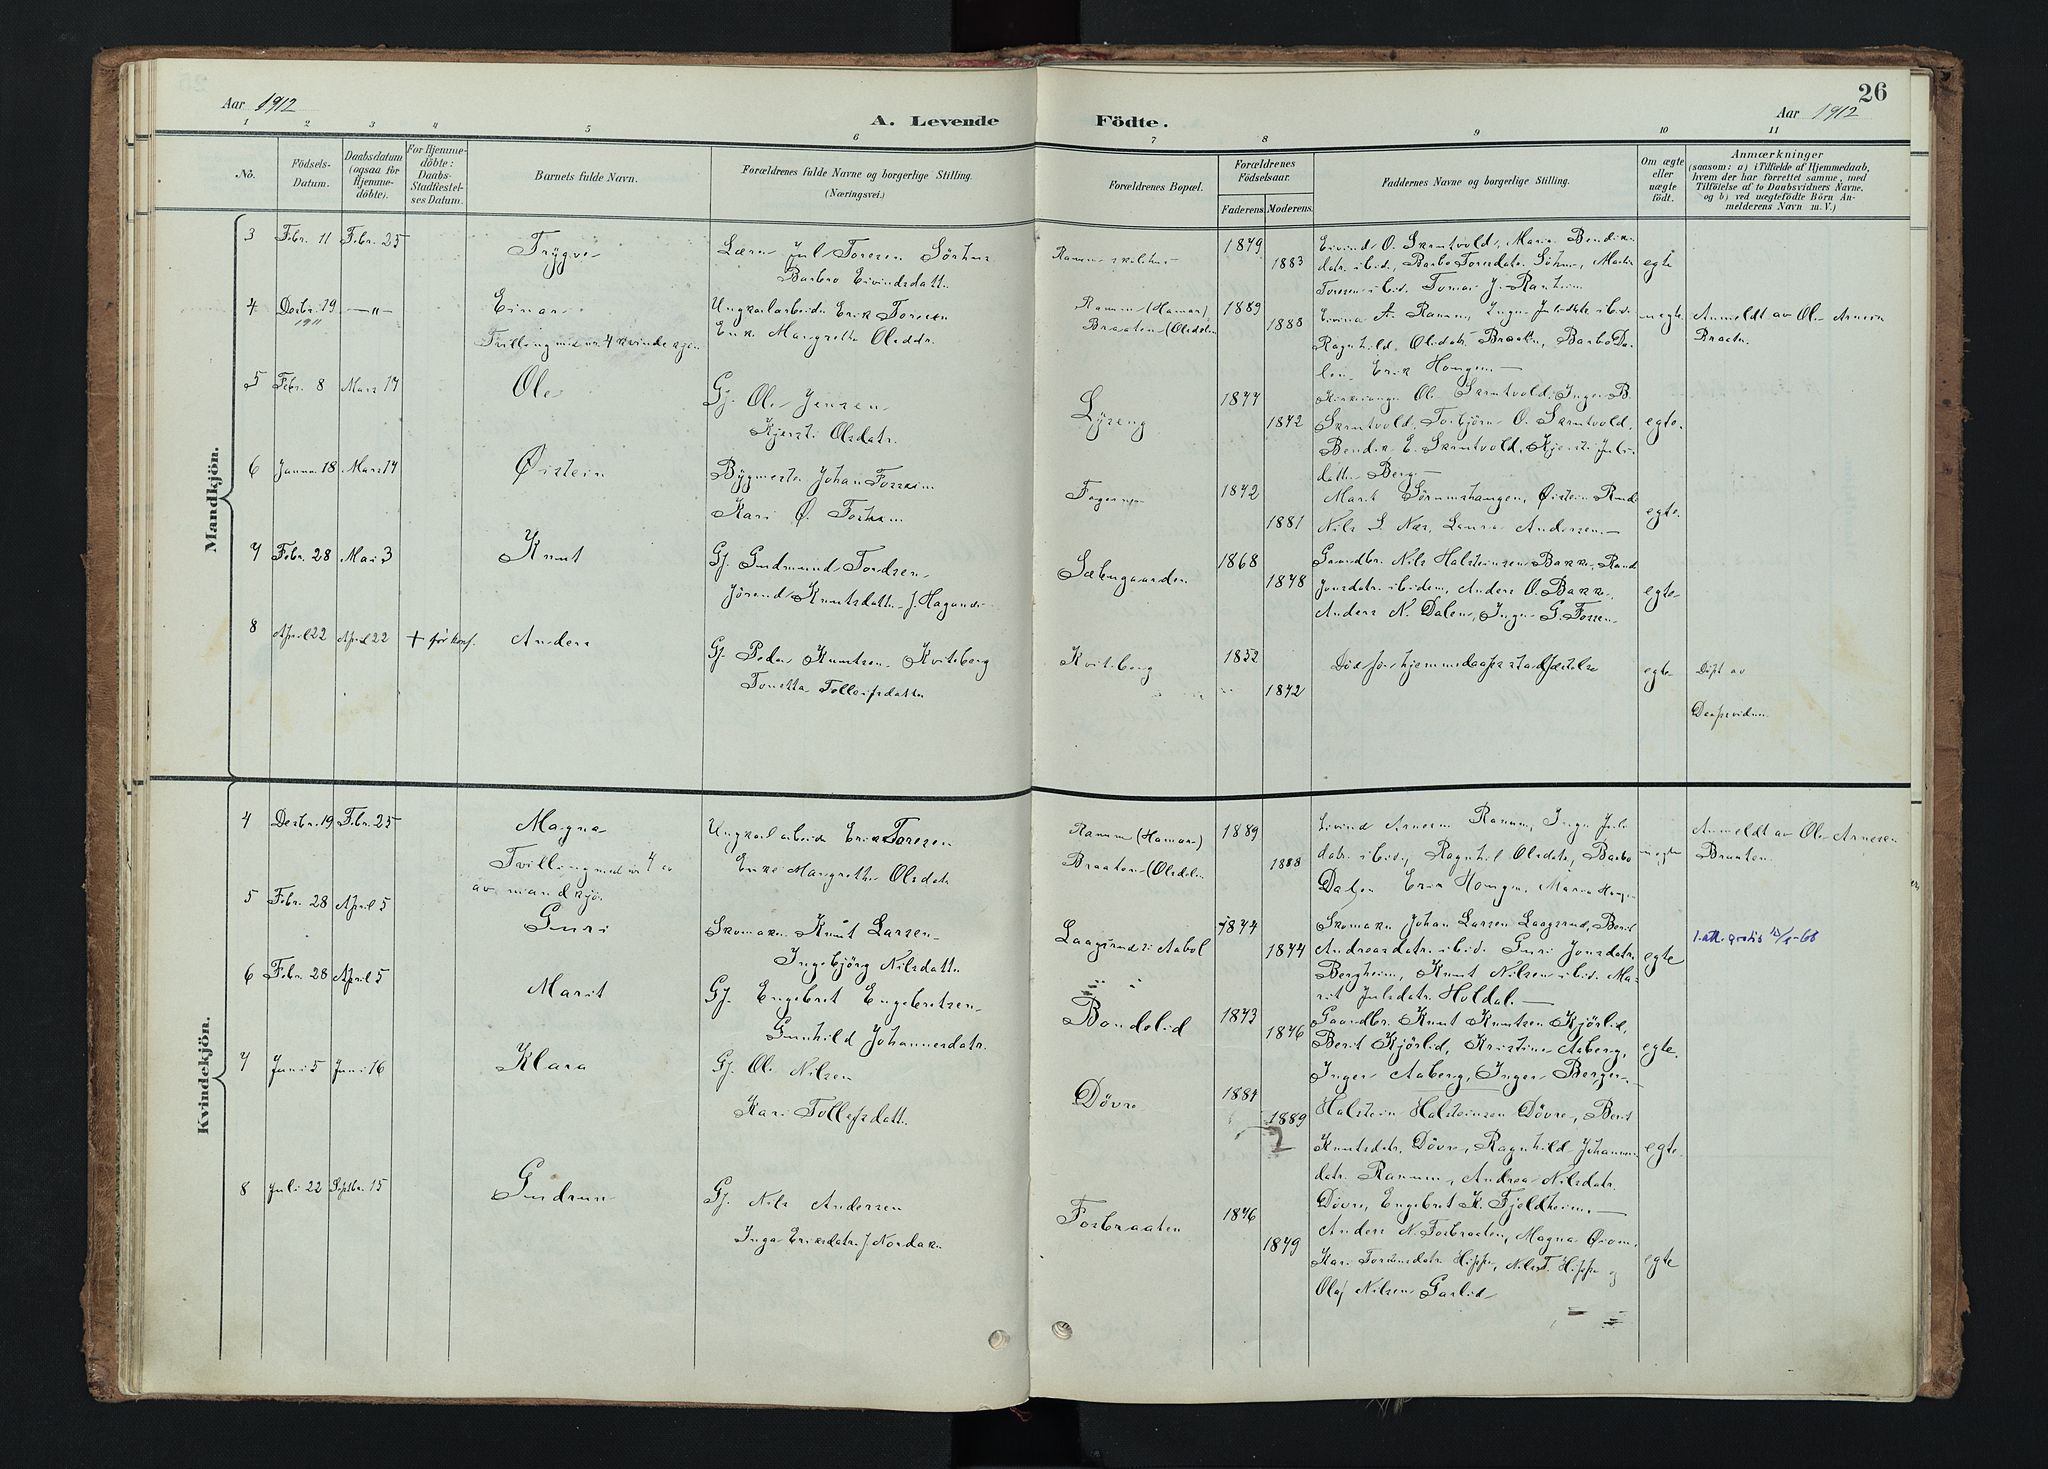 26
Aar 1912
A. Levende Födte.
Aar 1912
1 2 3 4 5 6 7 8 9 10 11
No.
Födsels-Datum.
Daabsdatum (ogsaa for Hjemme-döbte).
For Hjemme-döbte: Daabs-Stadfæstel-ses Datum.
Barnets fulde Navn.
Forældrenes fulde Navne og borgerlige Stilling.
(Næringsvei.)
Forældrenes Bopæl.
Forældrenes Födselsaar.
Faderens. Moderens.
Faddernes Navne og borgerlige Stilling.
Om ægte eller uægte født.
Anmærkninger
(saasom: a) i Tilfælde af Hjemmedaab,
hvem der har forrettet samme, med
Tilföielse af to Daabsvidners Navne,
og b) ved uægtefödte Börn An-
melderens Navn m. V.)
Mandkjön.
3 Febr. 11 Febr. 25 Trygve
Lærer Jul Toresen Sörhus
Barbro Eivindsdatter
1879 1883
Eivind O. Skrutvold, Marie Bendiks
datr. ibid., Barbo Toresdatr. Söhus, Martin
Toresen ibid. Tomas J. Ranheim
egte
4 Desbr. 19 1911 —"— Einar
Tvilling med nr. 4 kvindekjön
Ungkarl arbeider Erik Toresen
Enke Margrethe Olsdtr.
Ranum (Hamar)
Braaten (Olsdalen
1889 1888
Eivind A. Ranum, Inga Julsdatr. ibid.
Ragnhild Olsdatr. Braaten, Barbo Da-
len, Erik Haugen —
uegte
Anmeldt av Ole Arnesen
Braaten.
5 Febr. 8 Mars 17 Ole
Gj. Ole Jensen
Kjersti Olsdatr.
Lyseng
1877 1872
Kirkesanger Ole Skrutvold, Inger B.
Skrutvold, Torbjörn O. Skrutvold,
Bendik E. Skrutvold, Kjersti Juls-
datter Berg —
egte.
6 Januar 18 Mars 17 Øistein
Bygmester Johan Fosseim
Kari Ø. Fosheim
Fagernes
1872 1881
Marit Sörumshaugen, Øistein Rud
Nils S. Næs, Laura Andersen. —
egte.
7 Febr. 28 Mai 3 Knut
Gj. Gudmund Tordsen
Jörand Knutsdatter f. Hagande
Sæbugaarden
1868 1878
Gaardbr. Nils Halsteinsen Bakke, Rand
Jonsdatr. ibidem, Anders O. Bakke,
Anders N. Dalen, Inger G. Fossen
egte
8 April 22 April 22 + før konf. Anders
Gj. Peder Knutsen Kviteberg
Tonetta Tollefsdatter
Kviteberg
1852 1872
Död før hjemmedaapsstadfæstelse
egte
Döpt av
Daapsvidner
Kvindekjön.
4 Desbr. 19 Febr. 25 Magna
Tvilling med nr 4 av
av mandkjø.
Ungkarl arbeider Erik Toresen
Enke Margrethe Olsdatr.
Ranum (Hamar)
Braaten (Olsdalen
1889 1888
Eivind Arnesen Ranum, Inga Juls-
datr. ibid., Ragnhil Olsdatr., Barbo
Dalen Erik Haugen, Maria Haugen
uegte
Anmeldt av Ole Arnesen
Braaten.
5 Febr. 28 April 5 Guri
Skomaker Knut Larsen
Ingebjörg Nilsdatter
Laagsrud i Aabol
1874 1874
Skomaker Johan Larsen Laagsrud, Berit
Andreasdatr. ibid. Guri Jonsdatr.
Bergheim, Knut Nilsen ibid. Ma-
rit Julsdatr. Holdal. —
egte
1. att. gratis
6 Febr. 28 April 5 Marit
Gj. Engebret Engebretsen
Gunhild Johannesdatr.
Bondelid
1873 1876
Gaardbr. Knut Knutsen Kjörlid,
Berit Kjörlid, Kristine Aaberg,
Inger Aaberg, Inger Bergene
egte.
7 Juni 5 Juni 16 Klara
Gj. Ole Nilsen
Kari Tollefsdatter
Dövre
1881 1889
Halstein Halsteinsen Dövre, Berit
Knutsdatr. Dövre, Ragnhild Johannes-
datr. Ranum, Andrea Nilsdatr.
Dövre, Engebret K. Fjeldheim —
egte.
8 Juli 22 Septbr. 15 Gudrun
Gj. Nils Andersen
Inga Eriksdatr. f. Nordaker
Fosbraaten
1876 1879
Anders N. Fosbraaten, Magna Øiom,
Kari Torstensdatr. Hippe, Nils T. Hippe og
Olaf Nilsen Garlid
egte